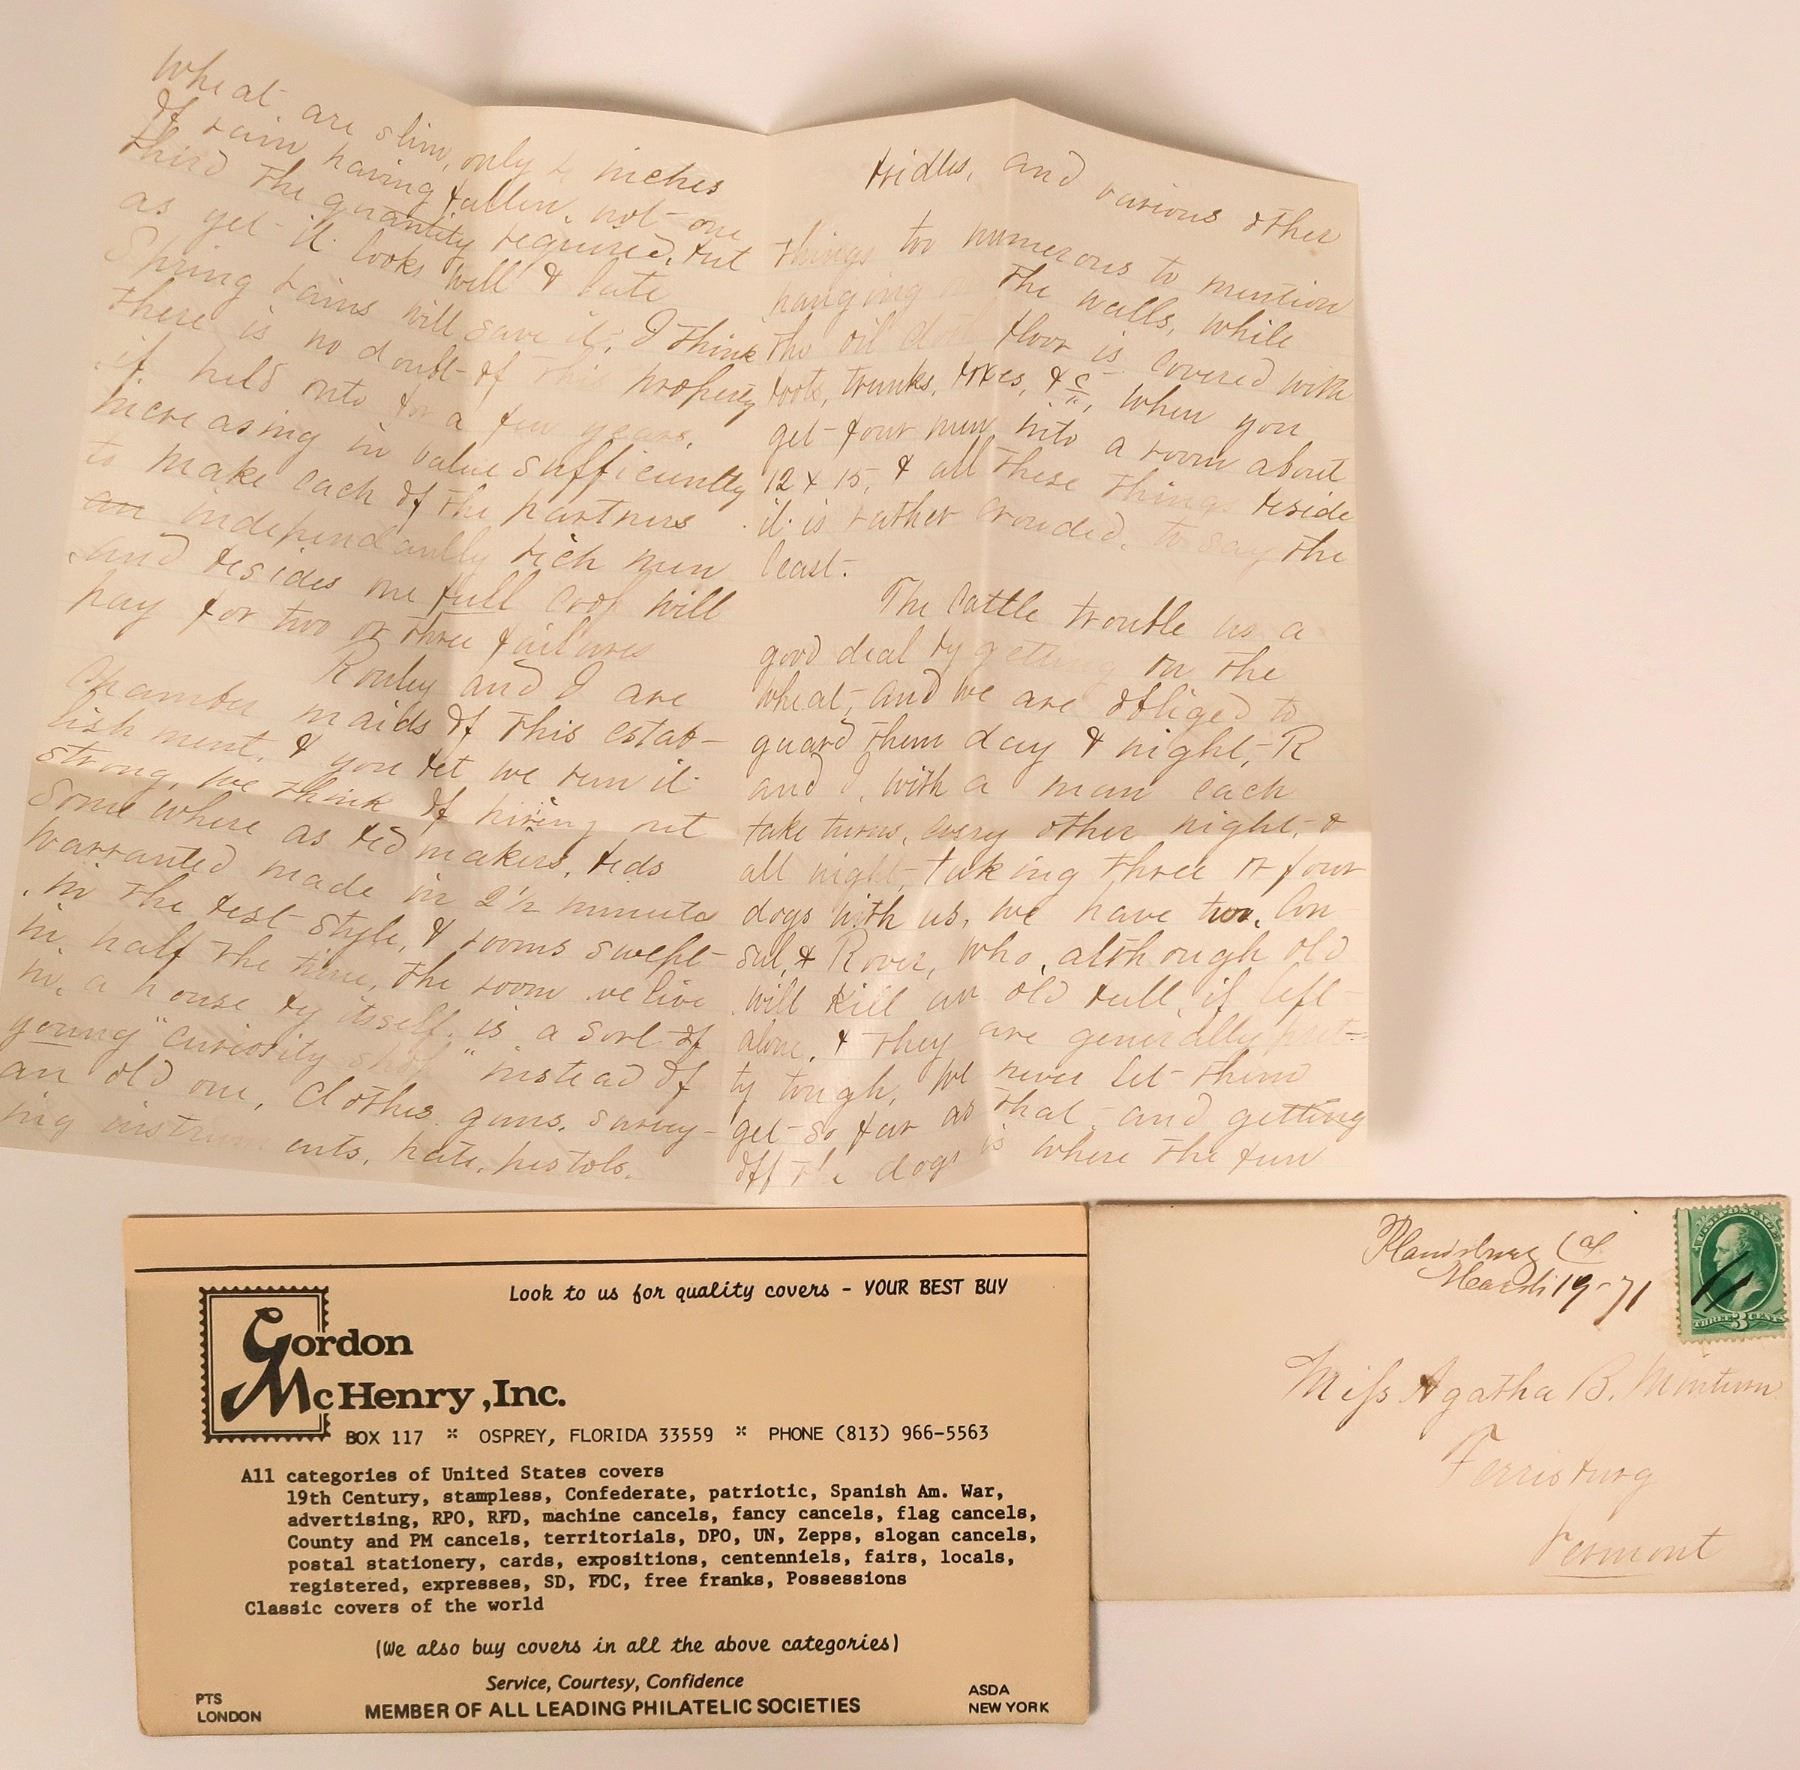 wheat are slim, only 4 inches
of rain having fallen, not one
third the quantity required, but
as yet it looks well & late
Spring rains will save it; I think
there is no doubt of this property
if held onto for a few years,
increasing in value sufficiently
to make each of the partners
an independantly rich men
and besides one full crop will
pay for two or three failures
Rouby and I are
chamber maids of this estab-
lishment, & you bet we run it
strong, we think of hiring out
some where as bed makers, beds
warranted made in 2 1/2 minutes
in the best style, & rooms swept
in half the time, the room we live
in, a house by itself, is a sort of
young "curiosity shop" instead of
an old one, Clothes, guns, survey-
ing instruments, hats, pistols,
bridles, and various other
things too numerous to mention
hanging on the walls, while
the oil cloth floor is covered with
boots, trunks, boxes, &c, when you
get four men into a room about
12 x 15, & all these things beside
it is rather crowded, to say the
least.
The Cattle trouble us a
good deal by getting on the
wheat, and we are obliged to
guard them day & night, R
and I, with a man each
take turns, every other night, &
all night, taking three or four
dogs with us, we have two, Con-
sul, & Rover, who, although old
will kill an old bull, if left
alone, & they are generally pret-
ty tough, we never let them
get so far as that, and getting
off the dogs is where the fun
Plainsburg Cal
March 19-71
THREE 3 CENTS
Miss Agatha B. Minturn
Ferrisburg
Vermont
Look to us for quality covers - YOUR BEST BUY
Gordon
McHenry, Inc.
BOX 117 * OSPREY, FLORIDA 33559 * PHONE (813) 966-5563
All categories of United States covers
19th Century, stampless, Confederate, patriotic, Spanish Am. War,
advertising, RPO, RFD, machine cancels, fancy cancels, flag cancels,
County and PM cancels, territorials, DPO, UN, Zepps, slogan cancels,
postal stationery, cards, expositions, centenniels, fairs, locals,
registered, expresses, SD, FDC, free franks, Possessions
Classic covers of the world
(We also buy covers in all the above categories)
Service, Courtesy, Confidence
PTS
LONDON
MEMBER OF ALL LEADING PHILATELIC SOCIETIES
ASDA
NEW YORK